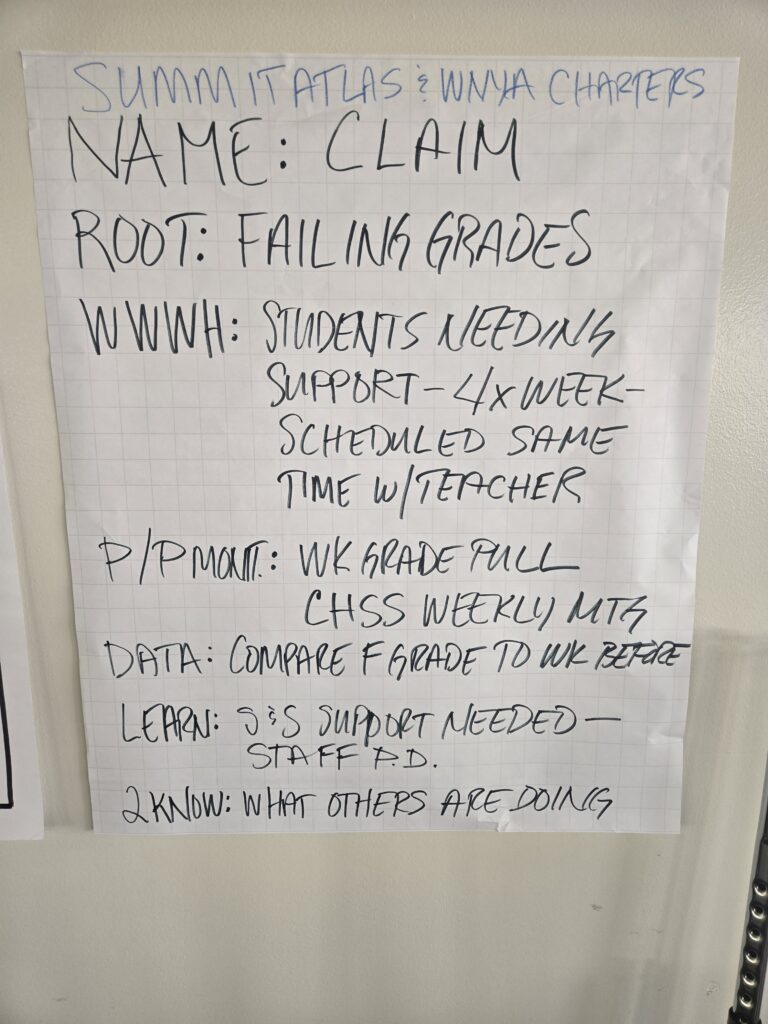 SUMMIT ATLAS & WNYA CHARTERS
NAME: CLAIM
ROOT: FAILING GRADES
WWWH: STUDENTS NEEDING
SUPPORT - 4x WEEK -
SCHEDULED SAME
TIME W/TEACHER
P/P MONIT.: WK GRADE PULL
CHSS WEEKLY MTG
DATA: COMPARE F GRADE TO WK BEFORE
LEARN: S & S SUPPORT NEEDED -
STAFF P.D.
2 KNOW: WHAT OTHERS ARE DOING